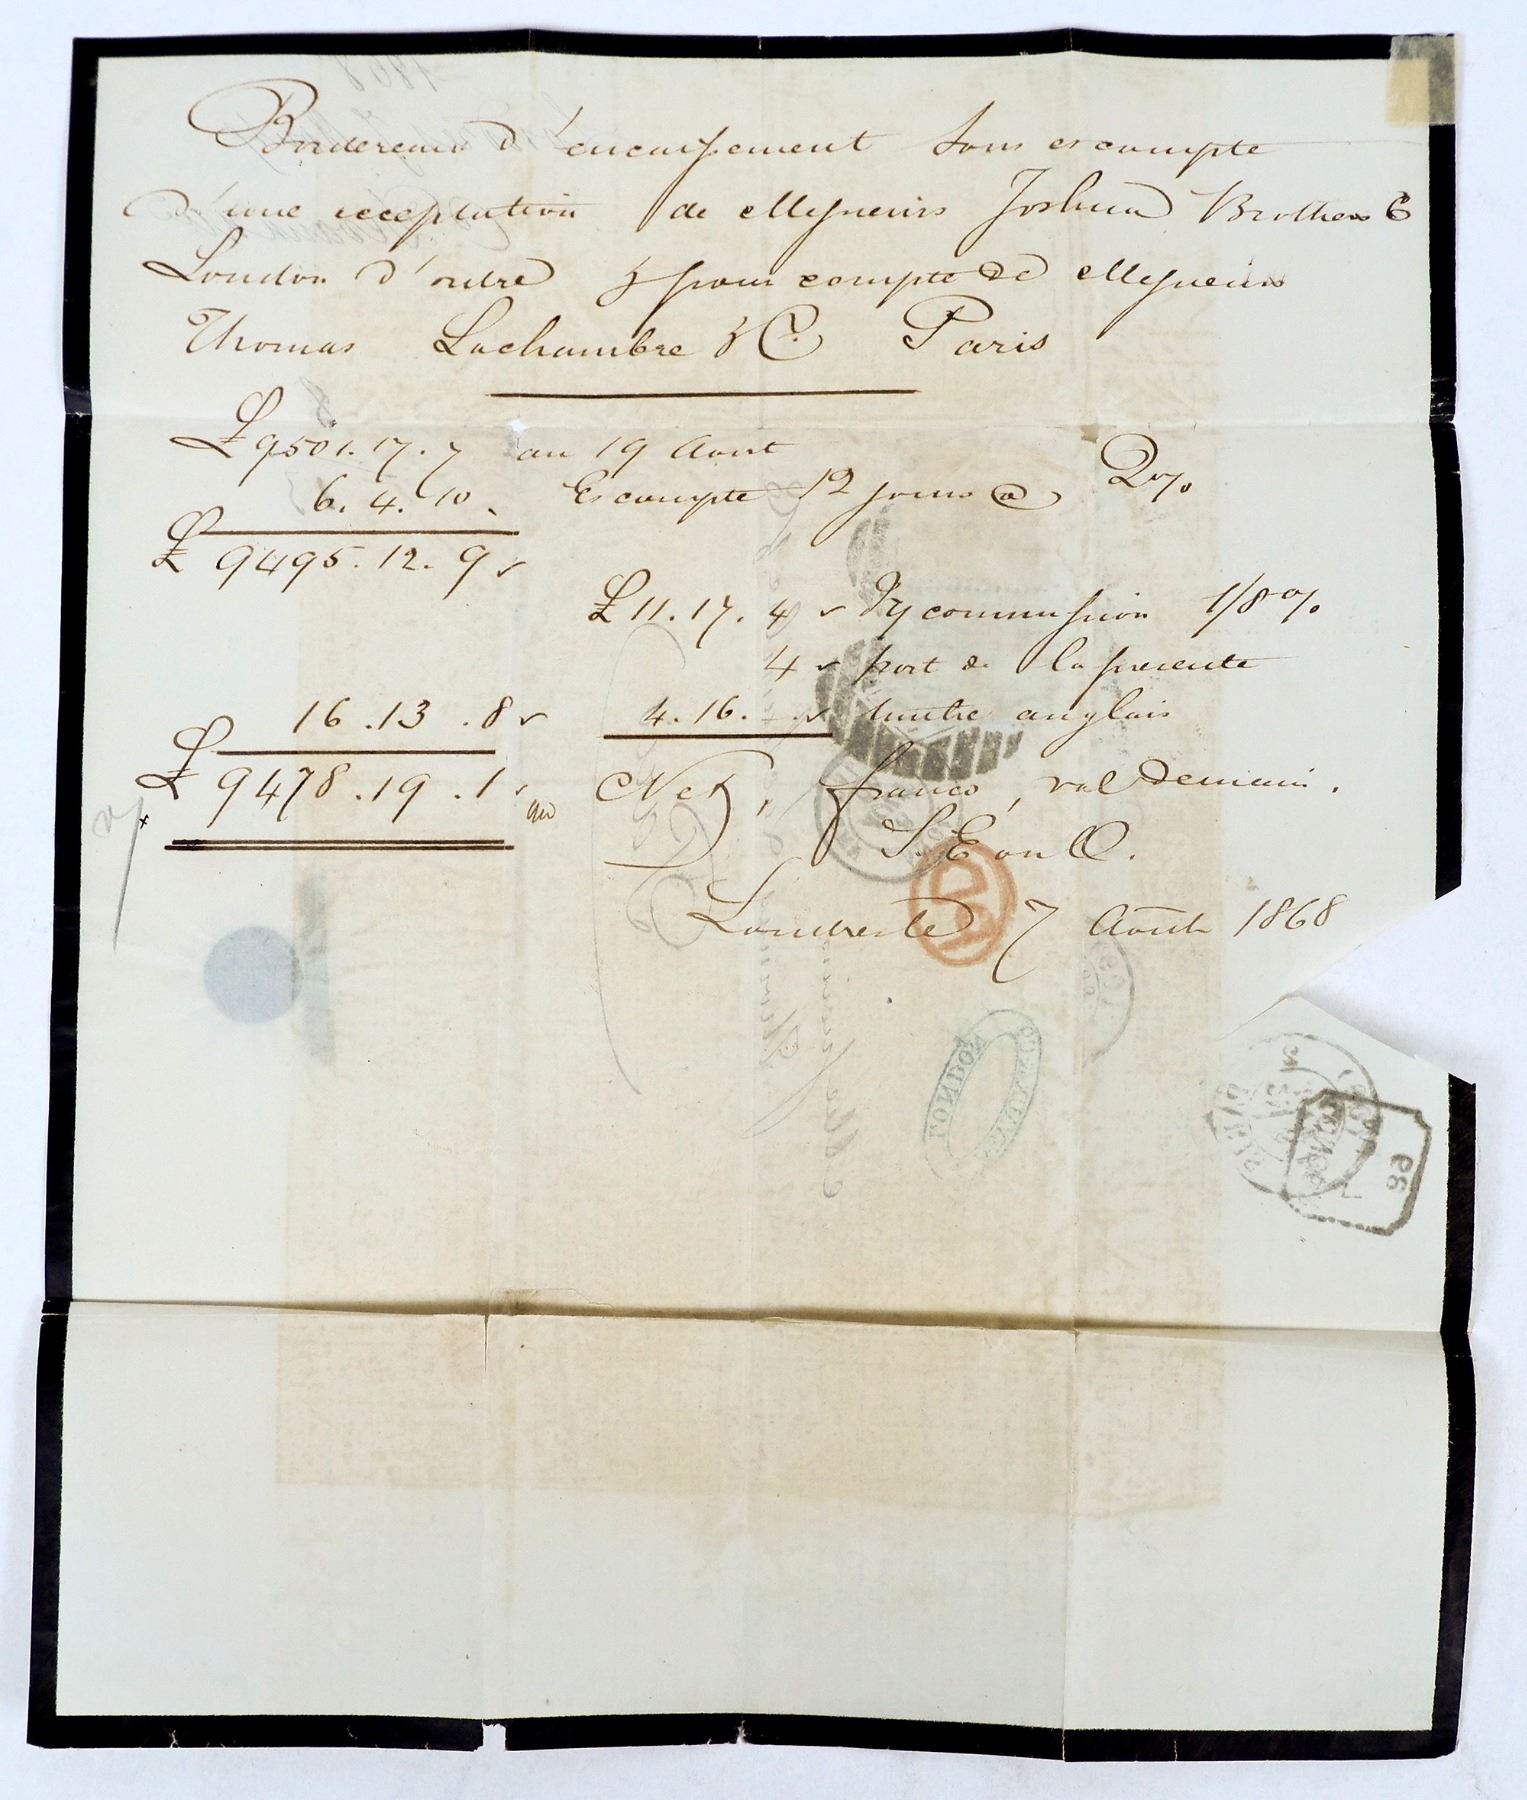 Bordereau d'encaissement sous escompte
d'une acceptation de Messieurs Joshua Brothers
London d'ordre & pour compte de Messieurs
Thomas Lachambre & Cº. Paris
£ 9501.17.7 au 19 Aout
6.4.10 Escompte 12 jours @ 2%
£ 9495.12.9
£ 11.17.4 commission 1/8 %
4 port de la presente
16.13.8 4.16.- timbre anglais
£ 9478.19.1 Net, franco, val demain.
S. E ou O.
Londres le 7 Août 1868
LONDON
98